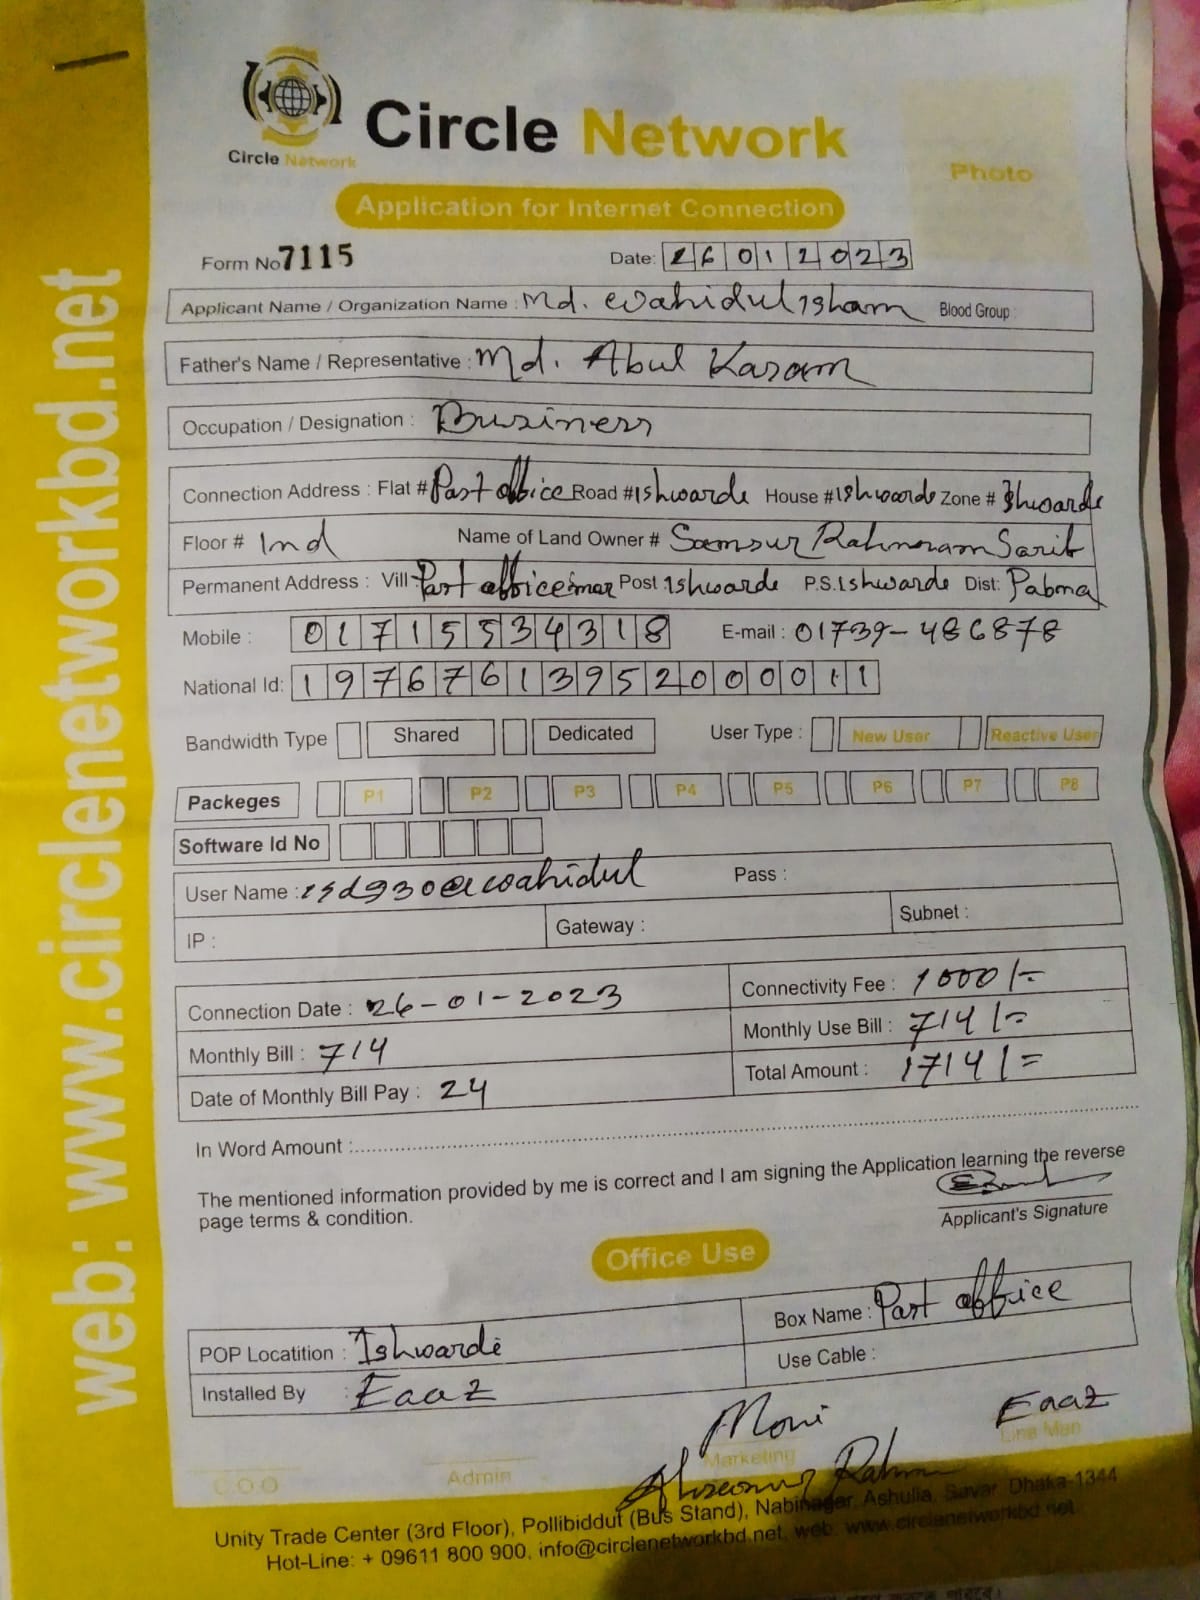 web: www.circlenetworkbd.net
Circle Network
Circle Network
Photo
Application for Internet Connection
Form No 7115 Date: 26012023
Applicant Name / Organization Name : Md. Wahidul Isham Blood Group :
Father's Name / Representative : Md. Abul Kasam
Occupation / Designation : Business
Connection Address : Flat # Post office Road # Ishwarde House # Ishwarde Zone # Ishwarde
Floor # Ind Name of Land Owner # Samsur Rahman Sarif
Permanent Address : Vill Post office Post Ishwarde P.S. Ishwarde Dist: Pabna
Mobile : 01715534318 E-mail : 01739-486878
National Id: 19767613952000011
Bandwidth Type Shared Dedicated User Type : New User Reactive User
Packeges P1 P2 P3 P4 P5 P6 P7 P8
Software Id No
User Name : isd930@wahidul Pass :
IP : Gateway : Subnet :
Connection Date : 26-01-2023 Connectivity Fee : 1000/-
Monthly Bill : 714 Monthly Use Bill : 714/=
Date of Monthly Bill Pay : 24 Total Amount : 1714/=
In Word Amount :
The mentioned information provided by me is correct and I am signing the Application learning the reverse
page terms & condition.
Applicant's Signature
Office Use
POP Locatition : Ishwardi Box Name : Post office
Installed By : Eaaz Use Cable :
Moni Eaaz
C O O Admin Marketing Line Man
Unity Trade Center (3rd Floor), Pollibiddut (Bus Stand), Nabinagar, Ashulia, Savar, Dhaka-1344
Hot-Line: + 09611 800 900, info@circlenetworkbd.net, web: www.circlenetworkbd.net